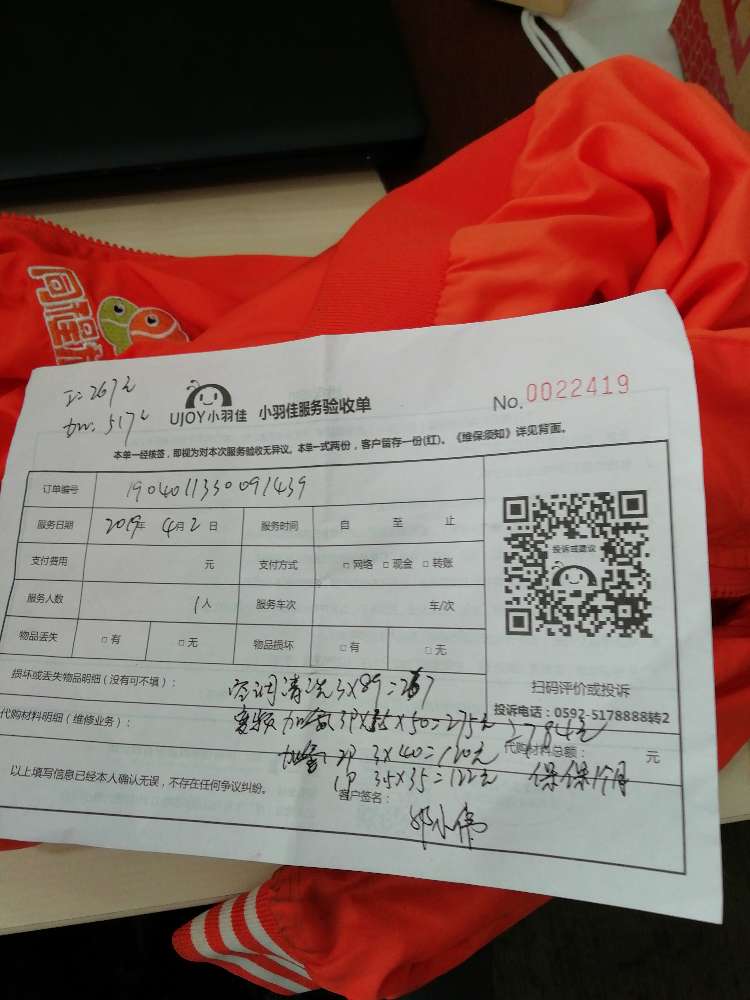 同程旅
工=267元
517元
UJOY小羽佳 小羽佳服务验收单 No.0022419
本单一经核签，即视为对本次服务验收无异议。本单一式两份，客户留存一份(红)。《维保须知》详见背面。
订单编号 1904011330091439
服务日期 2019年 4月2日 服务时间 自 至 止
支付费用 元 支付方式 □网络 □现金 □转账
服务人数 1人 服务车次 车/次
物品丢失 □有 □无 物品损坏 □有 □无
投诉或建议
扫码评价或投诉
投诉电话：0592-5178888转2
损坏或丢失物品明细（没有可不填）：
空调清洗3×89=267
代购材料明细（维修业务）：
变频加氟3P×5.5×50=275元
784元
代购材料总额： 元
2P 3×40=120元
1P 3.5×35=122元 保保1个月
以上填写信息已经本人确认无误，不存在任何争议纠纷。
客户签名： 邓小伟